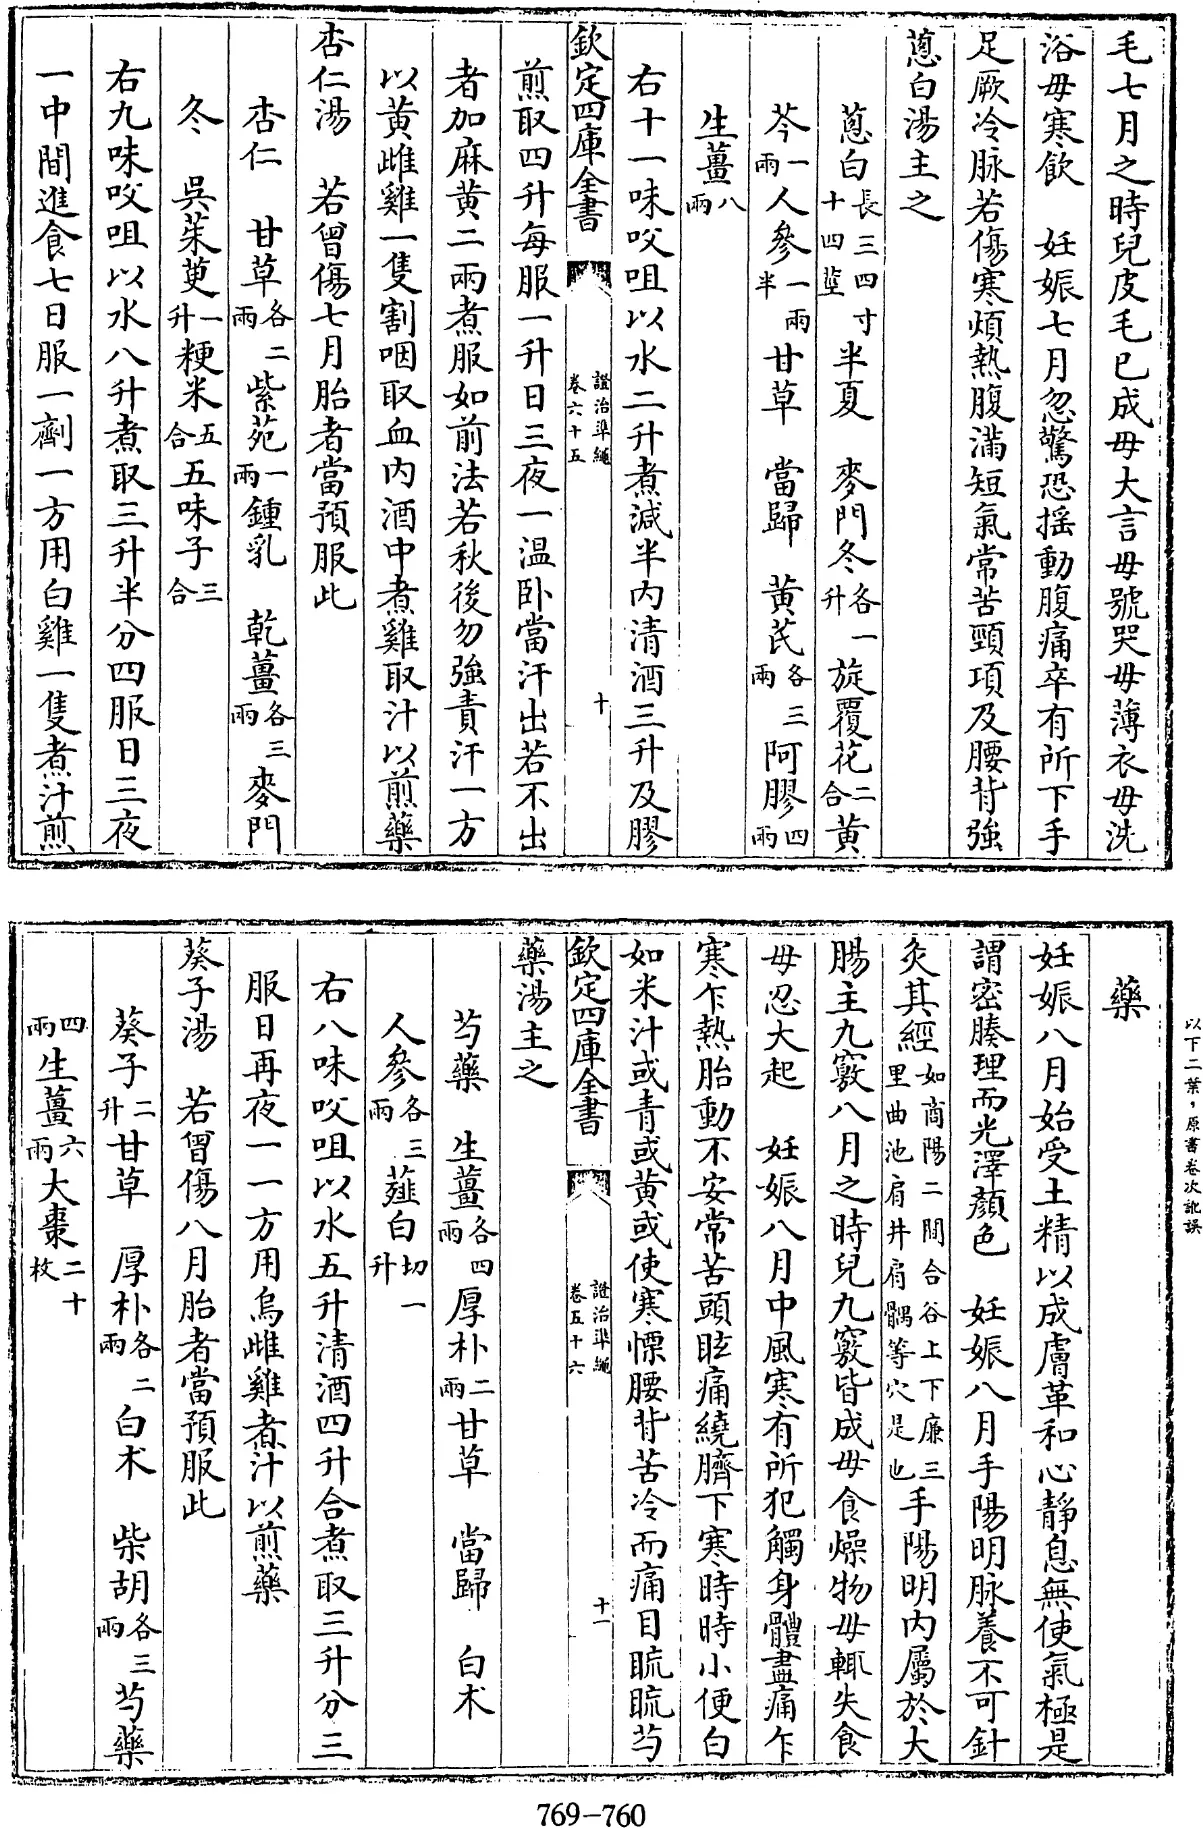 毛七月之時兒皮毛已成毋大言毋號哭毋薄衣毋洗
浴毋寒飲　妊娠七月忽驚恐揺動腹痛卒有所下手
足厥冷脉若傷寒煩熱腹滿短氣常苦頸項及腰背強
蔥白湯主之
蔥白長三四寸十四莖半夏　麥門冬各一升旋覆花二合黃
芩一兩人參一兩半甘草　當歸　黃芪各三兩阿膠四兩
生薑八兩
右十一味㕮咀以水二升煮減半内清酒三升及膠
欽定四庫全書
證治準繩
卷六十五
十
煎取四升每服一升日三夜一温卧當汗出若不出
者加麻黃二兩煮服如前法若秋後勿強責汗一方
以黃雌雞一隻割咽取血内酒中煮雞取汁以煎藥
杏仁湯　若曾傷七月胎者當預服此
杏仁　甘草各二兩紫苑一兩鍾乳　乾薑各三兩麥門
冬　吳茱萸一升粳米五合五味子三合
右九味㕮咀以水八升煮取三升半分四服日三夜
一中間進食七日服一劑一方用白雞一隻煮汁煎
藥
以下二葉，原書卷次訛誤
妊娠八月始受土精以成膚革和心靜息無使氣極是
謂密腠理而光澤顏色　妊娠八月手陽明脉養不可針
灸其經如商陽二間合谷上下廉三里曲池肩井肩髃等穴是也手陽明内屬於大
腸主九竅八月之時兒九竅皆成毋食燥物毋輒失食
毋忍大起　妊娠八月中風寒有所犯觸身體盡痛乍
寒乍熱胎動不安常苦頭眩痛繞臍下寒時時小便白
如米汁或青或黃或使寒慄腰背苦冷而痛目䀮䀮芍
欽定四庫全書
證治準繩
卷五十六
十一
藥湯主之
芍藥　生薑各四兩厚朴二兩甘草　當歸　白术
人參各三兩薤白切一升
右八味㕮咀以水五升清酒四升合煮取三升分三
服日再夜一一方用烏雌雞煮汁以煎藥
葵子湯　若曾傷八月胎者當預服此
葵子二升甘草　厚朴各二兩白术　柴胡各三兩芍藥
四兩生薑六兩大棗二十枚
769-760